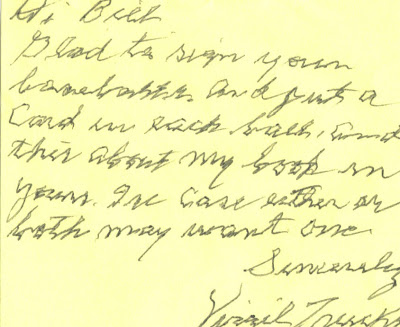 Hi Bill
Glad to sign your
baseballs and put a
card in each ball, and
this about my book in
yours. In case either or
both may want one.
Sincerely
Virgil Trucks